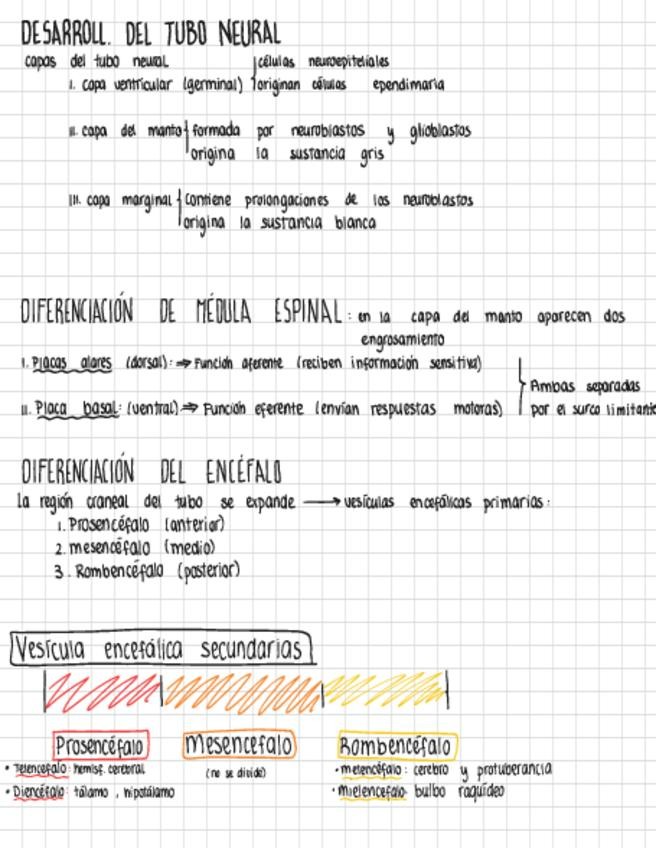 DESARROLL. DEL TUBO NEURAL
capas del tubo neural
I. capa ventricular (germinal) células neuroepiteliales
originan células ependimaria
II. capa del manto formada por neuroblastos y glioblastos
origina la sustancia gris
III. capa marginal contiene prolongaciones de los neuroblastos
origina la sustancia blanca
DIFERENCIACIÓN DE MÉDULA ESPINAL: en la capa del manto aparecen dos
engrosamiento
I. Placas alares (dorsal): ⇒ Función aferente (reciben información sensitiva)
II. Placa basal: (ventral) ⇒ Función eferente (envían respuestas motoras)
Ambas separadas
por el surco limitante
DIFERENCIACIÓN DEL ENCÉFALO
la región craneal del tubo se expande → vesículas encefálicas primarias:
1. Prosencéfalo (anterior)
2. mesencéfalo (medio)
3. Rombencéfalo (posterior)
Vesícula encefálica secundarias
Prosencéfalo Mesencefalo Rombencéfalo
• Telencéfalo: hemisf. cerebral (no se divide) • metencéfalo: cerebro y protuberancia
• Diencéfalo: tálamo, hipotálamo • Mielencefalo: bulbo raquídeo